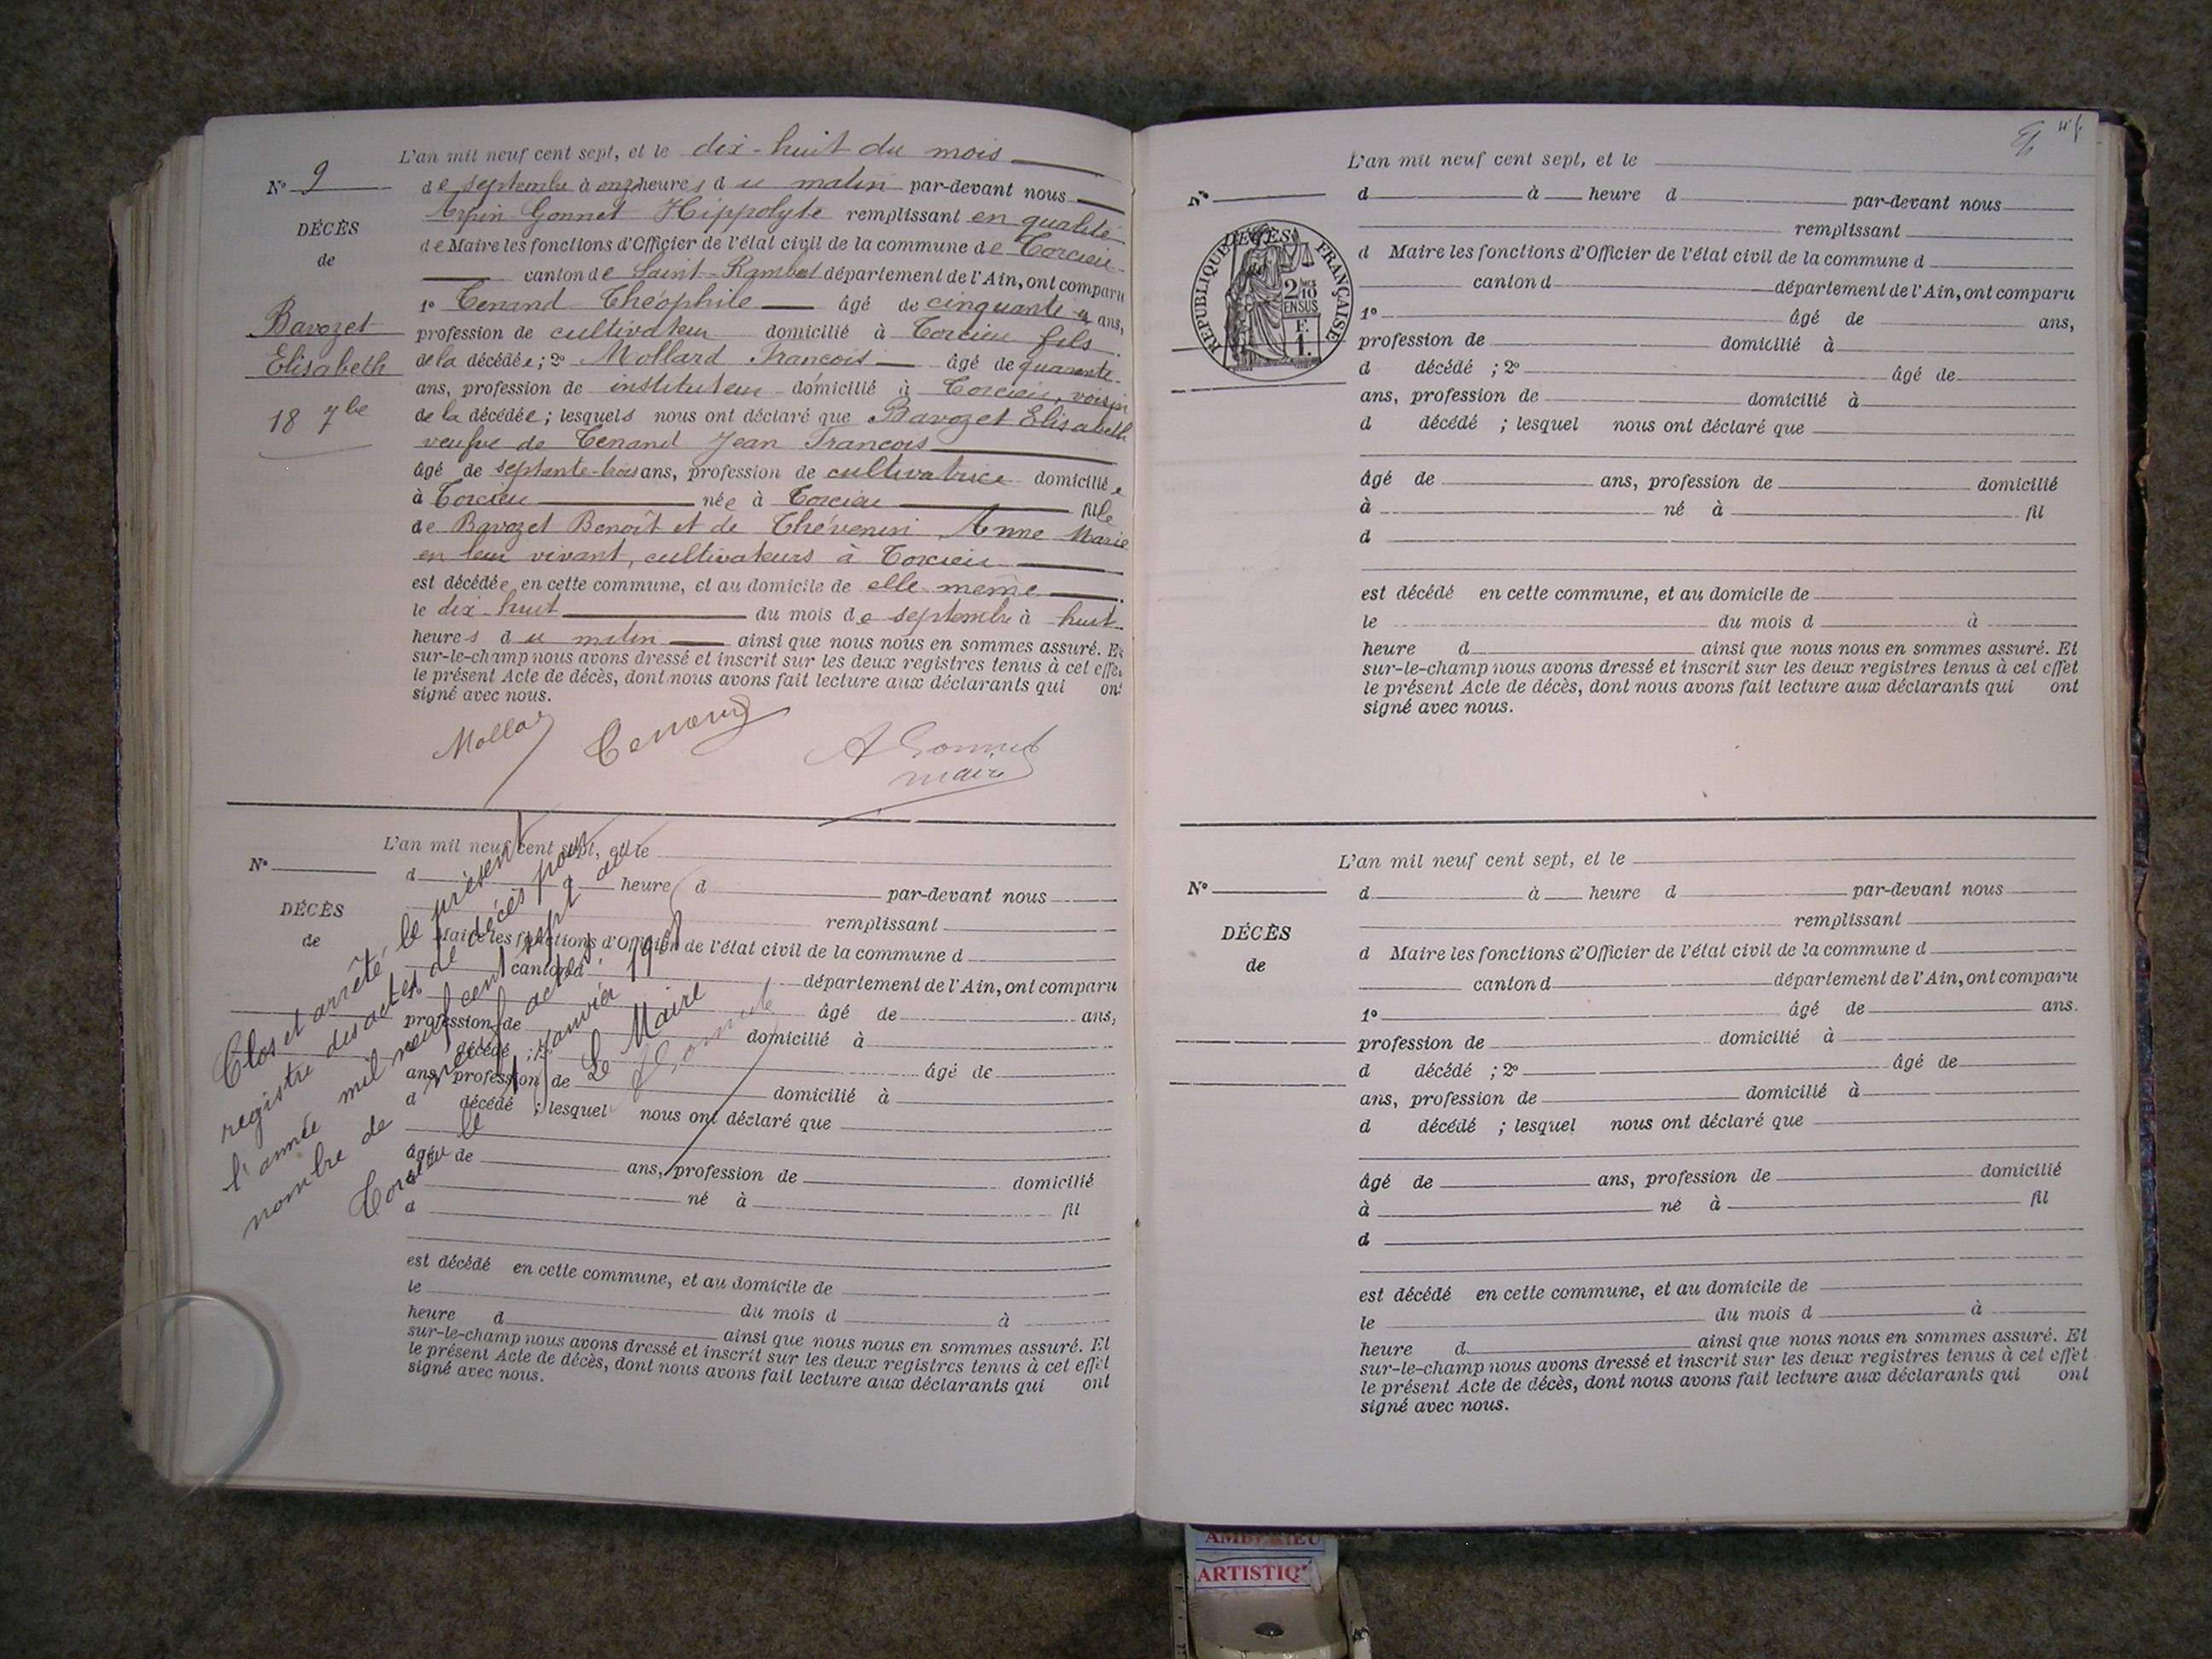 L'an mil neuf cent sept, et le dix-huit du mois
N° 9
de septembre à onze heures du matin par-devant nous
Arpin Gonnet Hippolyte remplissant en qualité
DÉCÈS
de Maire les fonctions d'Officier de l'état civil de la commune de Torcieu
de
canton de Saint-Rambert département de l'Ain, ont comparu
1° Tenand Théophile âgé de cinquante ans,
Bavozet
profession de cultivateur domicilié à Torcieu fils
Elisabeth
de la décédée; 2° Mollard Francois âgé de quarante
ans, profession de instituteur domicilié à Torcieu, voisin
18 7bre
de la décédée; lesquels nous ont déclaré que Bavozet Elisabeth
veufve de Tenand Jean Francois
âgé de septante-trois ans, profession de cultivatrice domiciliée
à Torcieu née à Torcieu fille
de Bavozet Benoît et de Thévenin Anne Marie
en leur vivant, cultivateurs à Torcieu
est décédée en cette commune, et au domicile de elle même
le dix-huit du mois de septembre à huit
heures du matin ainsi que nous nous en sommes assuré. Et
sur-le-champ nous avons dressé et inscrit sur les deux registres tenus à cet effet
le présent Acte de décès, dont nous avons fait lecture aux déclarants qui ont
signé avec nous.
Mollard Tenand A Gonnet
maire
L'an mil neuf cent sept, et le
N°
d à heure d par-devant nous
DÉCÈS
remplissant
de
Maire les fonctions d'Officier de l'état civil de la commune d
canton d département de l'Ain, ont comparu
âgé de ans,
profession de domicilié à
décédé ; 2° âgé de
ans, profession de domicilié à
d décédé ; lesquel nous ont déclaré que
âgé de ans, profession de domicilié
né à fil
d
est décédé en cette commune, et au domicile de
le du mois d à
heure d ainsi que nous nous en sommes assuré. Et
sur-le-champ nous avons dressé et inscrit sur les deux registres tenus à cet effet
le présent Acte de décès, dont nous avons fait lecture aux déclarants qui ont
signé avec nous.
Clos et arrêté le présent
registre des actes de décès pour
l'année mil neuf cent sept au
nombre de neuf actes.
Torcieu le 1 janvier 1908
Le Maire
A Gonnet
L'an mil neuf cent sept, et le
N°
d à heure d par-devant nous
remplissant
DÉCÈS
RÉPUBLIQUE FRANÇAISE
2/10 EN SUS
F.
1.
d Maire les fonctions d'Officier de l'état civil de la commune d
canton d département de l'Ain, ont comparu
1° âgé de ans,
profession de domicilié à
d décédé ; 2° âgé de
ans, profession de domicilié à
d décédé ; lesquel nous ont déclaré que
âgé de ans, profession de domicilié
à né à fil
d
est décédé en cette commune, et au domicile de
le du mois d à
heure d ainsi que nous nous en sommes assuré. Et
sur-le-champ nous avons dressé et inscrit sur les deux registres tenus à cet effet
le présent Acte de décès, dont nous avons fait lecture aux déclarants qui ont
signé avec nous.
L'an mil neuf cent sept, et le
N°
d à heure d par-devant nous
remplissant
DÉCÈS
d Maire les fonctions d'Officier de l'état civil de la commune d
de
canton d département de l'Ain, ont comparu
1° âgé de ans.
profession de domicilié à
d décédé ; 2° âgé de
ans, profession de domicilié à
d décédé ; lesquel nous ont déclaré que
âgé de ans, profession de domicilié
à né à fil
d
est décédé en cette commune, et au domicile de
le du mois d à
heure d ainsi que nous nous en sommes assuré. Et
sur-le-champ nous avons dressé et inscrit sur les deux registres tenus à cet effet
le présent Acte de décès, dont nous avons fait lecture aux déclarants qui ont
signé avec nous.
AMBERIEU
ARTISTIQ